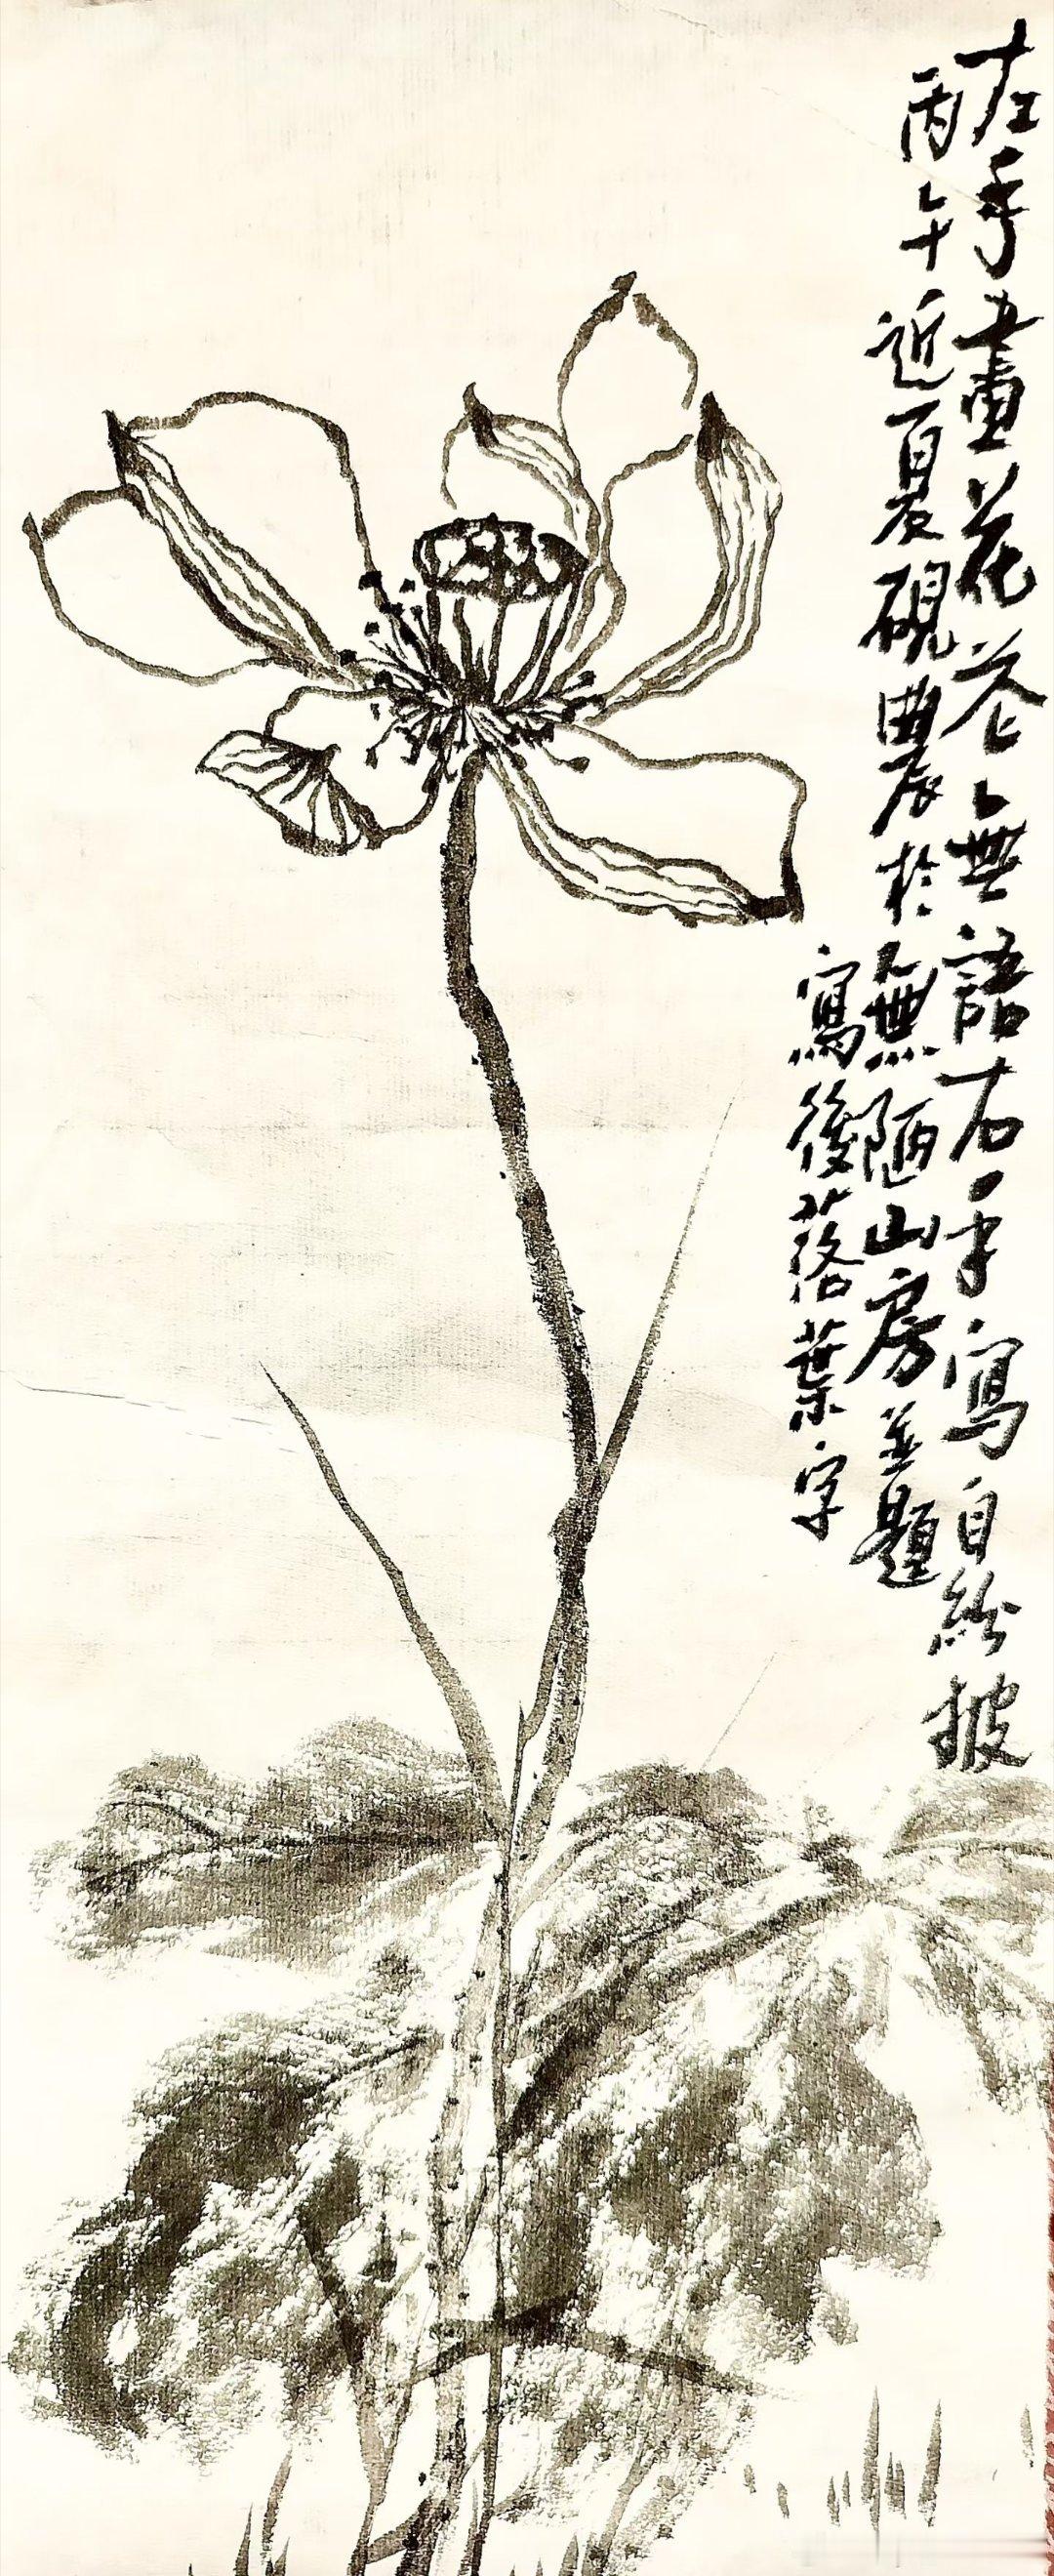 左手畫花花無語右手寫自紛披
丙午近夏硯農於無陋山房並題
寫後落葉字